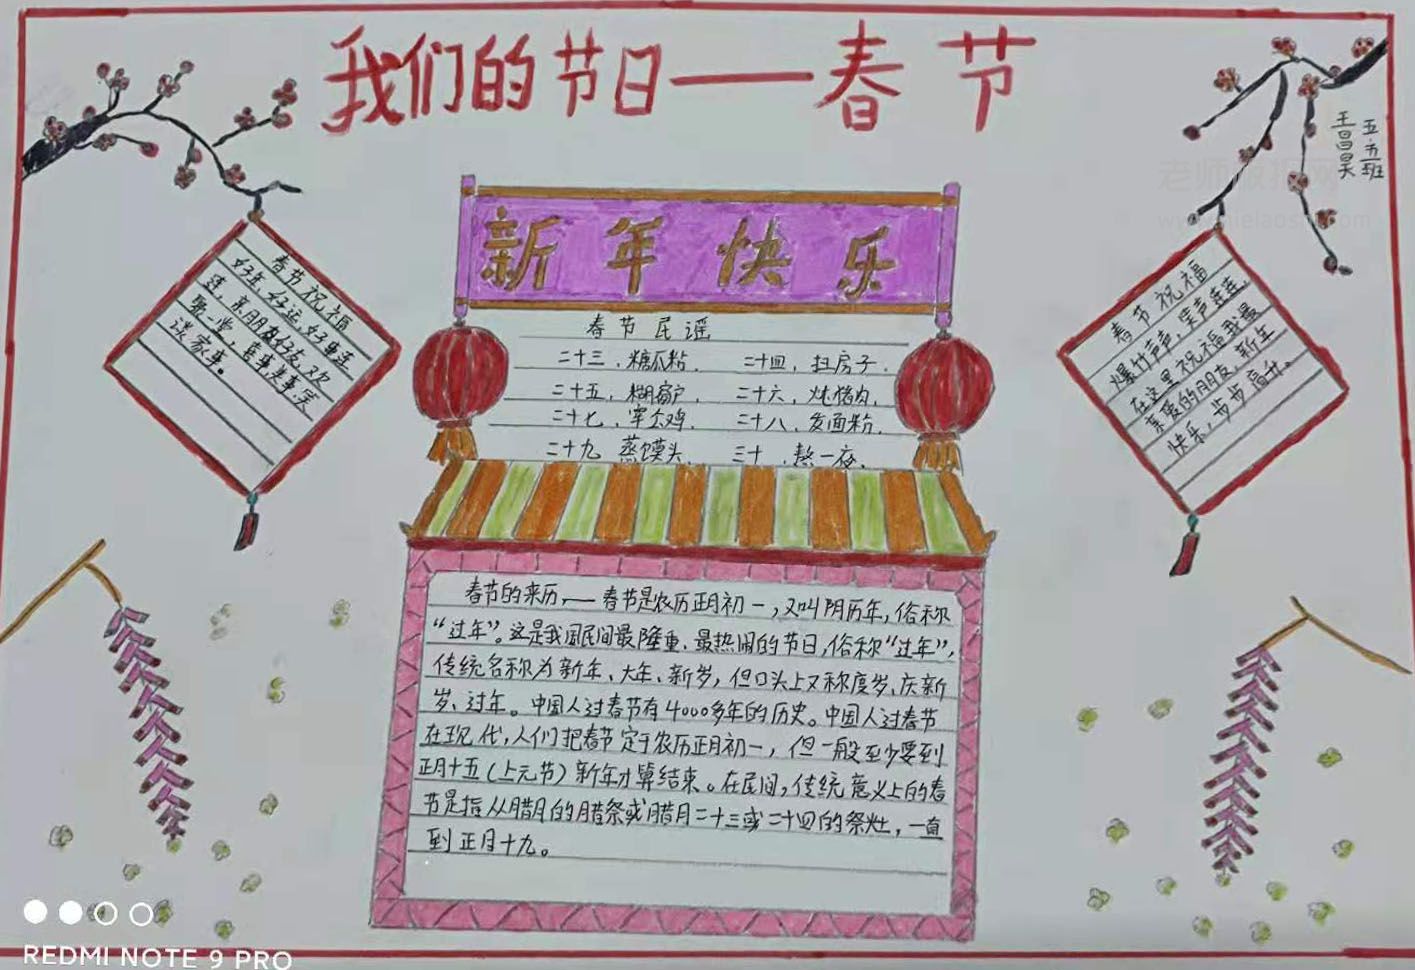 我们的节日——春节
五.五班
王昌昊
新年快乐
春节祝福
好年,好运,好事连
连,亲朋好友,欢
聚一堂,喜事美事笑
谈家事。
春节民谣
二十三,糖瓜粘, 二十四,扫房子,
二十五,糊窗户, 二十六,炖猪肉,
二十七,宰公鸡, 二十八,发面粉,
二十九 蒸馍头, 三十,熬一夜,
春节祝福
爆竹声声,笑声连连,
在这里祝福我最
亲爱的朋友,新年
快乐,步步高升。
春节的来历,——春节是农历正月初一,又叫阴历年,俗称
“过年”。这是我国民间最隆重、最热闹的节日,俗称“过年”,
传统名称为新年、大年、新岁,但口头上又称度岁、庆新
岁、过年。中国人过春节有4000多年的历史。中国人过春节
在现代,人们把春节定于农历正月初一,但一般至少要到
正月十五(上元节)新年才算结束。在民间,传统意义上的春
节是指从腊月的腊祭或腊月二十三或二十四的祭灶,一直
到正月十九。
REDMI NOTE 9 PRO